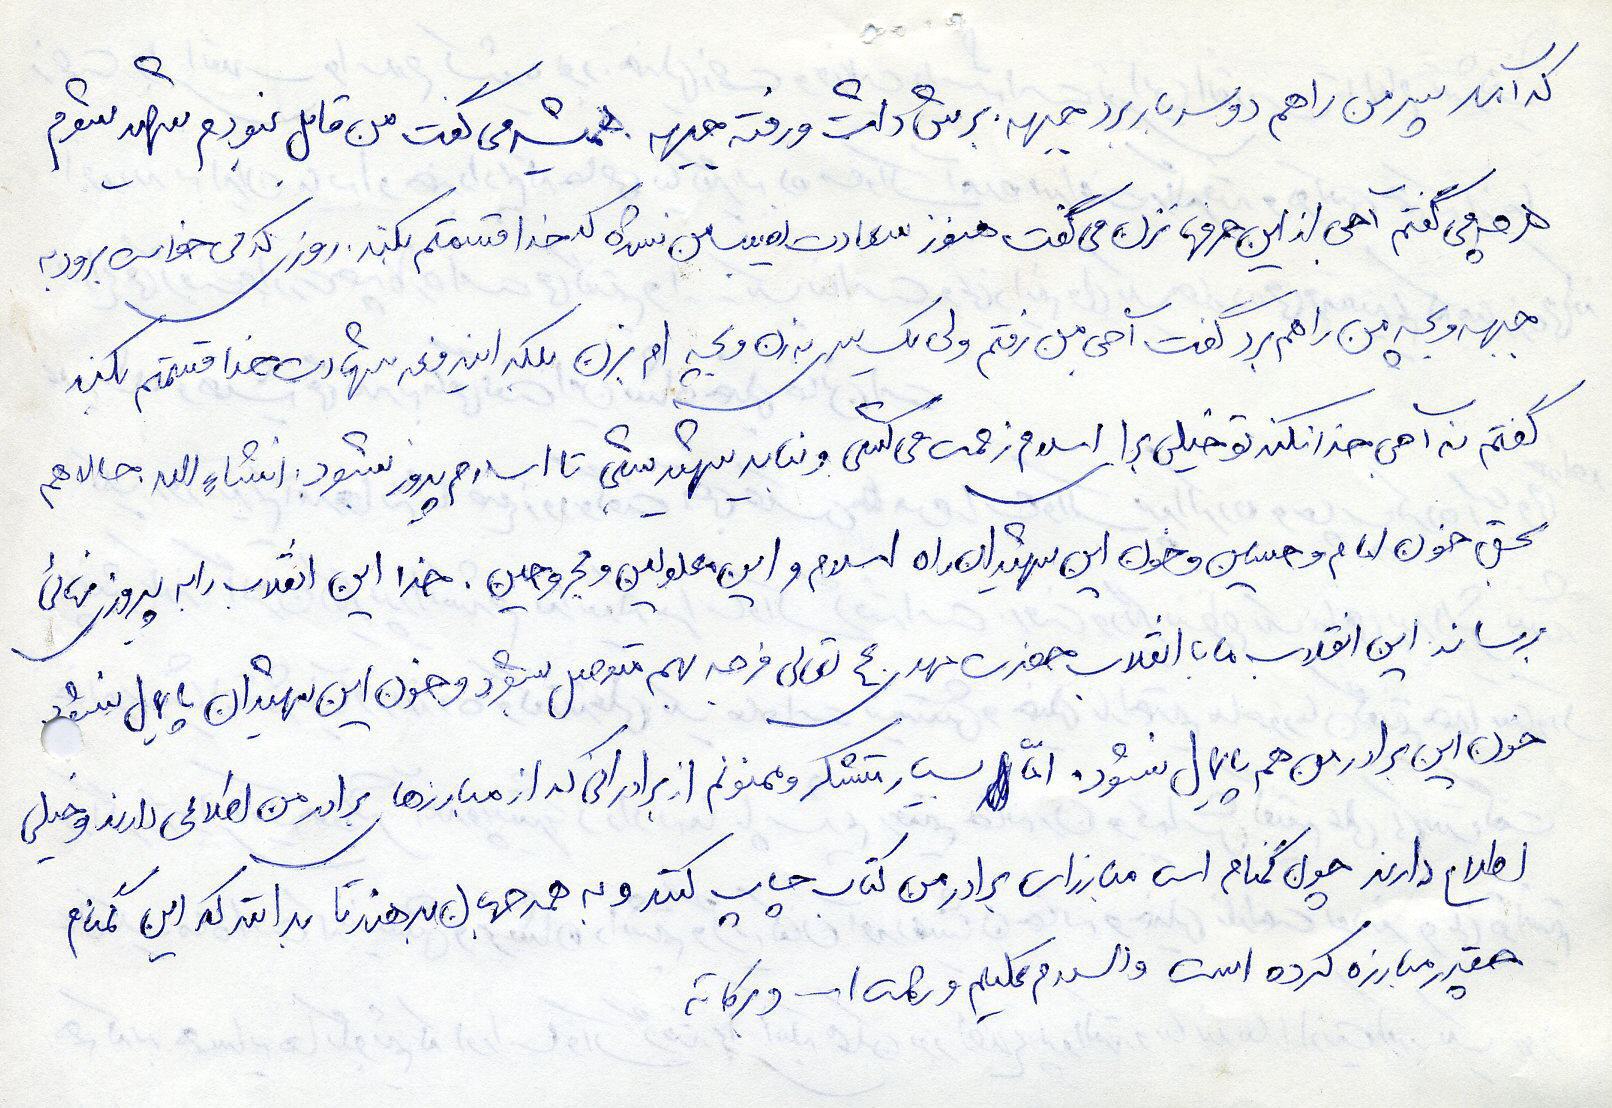 که آمد پسر من را هم دو سه بار برد جبهه. برش داشت و رفته جبهه. همیشه می گفت من قابل نبودم شهید شوم
هر چه می گفتم آجی از این حرفها نزن می گفت هنوز سعادت نصیب من نشده که خدا قسمتم بکند. روزی که می خواست برود به
جبهه و بچه من را هم برد گفت آجی من رفتم ولی یک سر به زن و بچه ام بزن بلکه ایندفعه شهادت خدا قسمتم بکند
گفتم نه آجی خدا نکند تو خیلی برای اسلام زحمت می کشی و نباید شهید بشی تا اسلام پیروز بشود. انشاء الله. حالا هم
بحق خون امام و حسین و خون این شهیدان راه اسلام و این معلولین و مجروحین. خدا این انقلاب را به پیروزی نهائی
برساند این انقلاب ما با انقلاب حضرت مهدی عج تعالی فرجه بهم متصل بشود و خون این شهیدان پایمال نشود.
خون این برادر من هم پایمال نشود. امّا بسیار متشکر و ممنونم از برادرانی که از مبارزهای برادر من اطلاعی دارند و خیلی
اطلاع دارند چون گمنام است مبارزات برادر من کتاب چاپ کنند و به همه جهان بدهند تا بدانند که این گمنام
چقدر مبارزه کرده است والسلام علیکم و رحمت ا... و برکاته